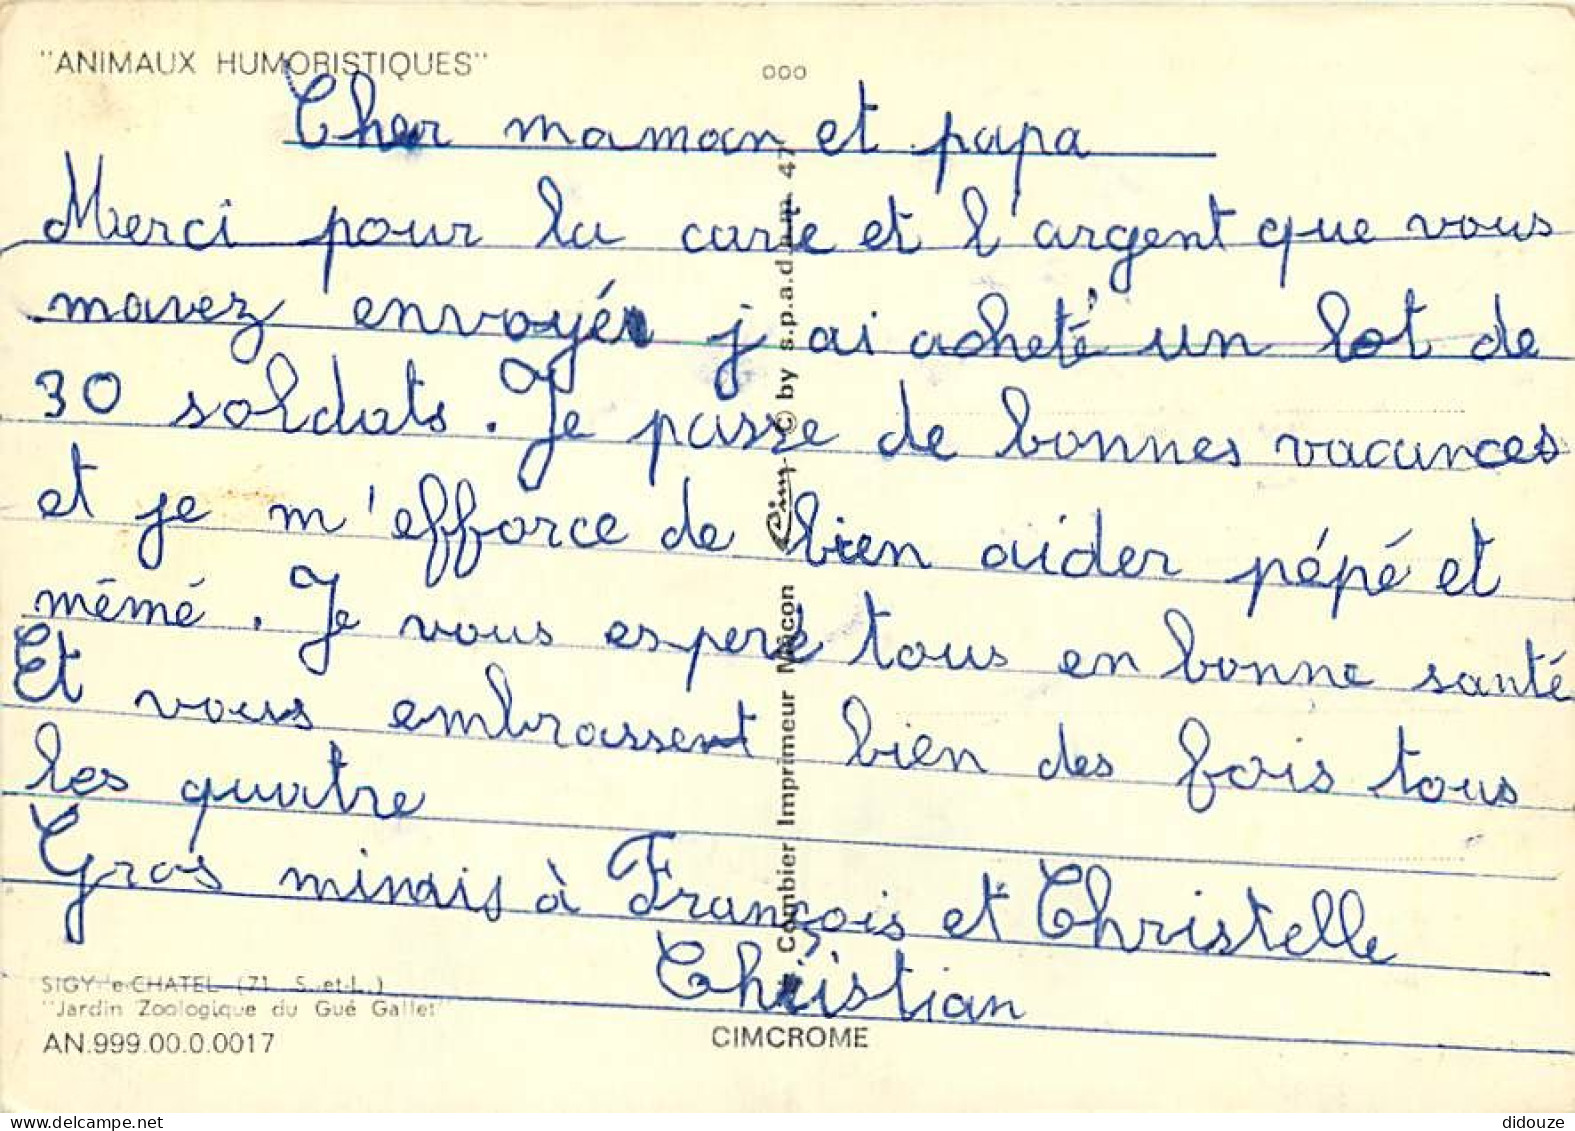 "ANIMAUX HUMORISTIQUES"
000
Cher maman et papa
Merci pour la carte et l'argent que vous
mavez envoyér j ai acheté un lot de
30 soldats. Je passe de bonnes vacances
et je m'efforce de bien aider pépé et
mémé. Je vous esperè tous en bonne santé
Et vous embrassent bien des fois tous
les quatre
Gros mimis à François et Christelle
Christian
Combier Imprimeur Mâcon Cim © by s.p.a.d.e.m. 47
SIGY-le-CHATEL (71 S.-et-L.)
"Jardin Zoologique du Gué Gallet"
AN.999.00.0.0017
CIMCROME
delcampe.net
didouze